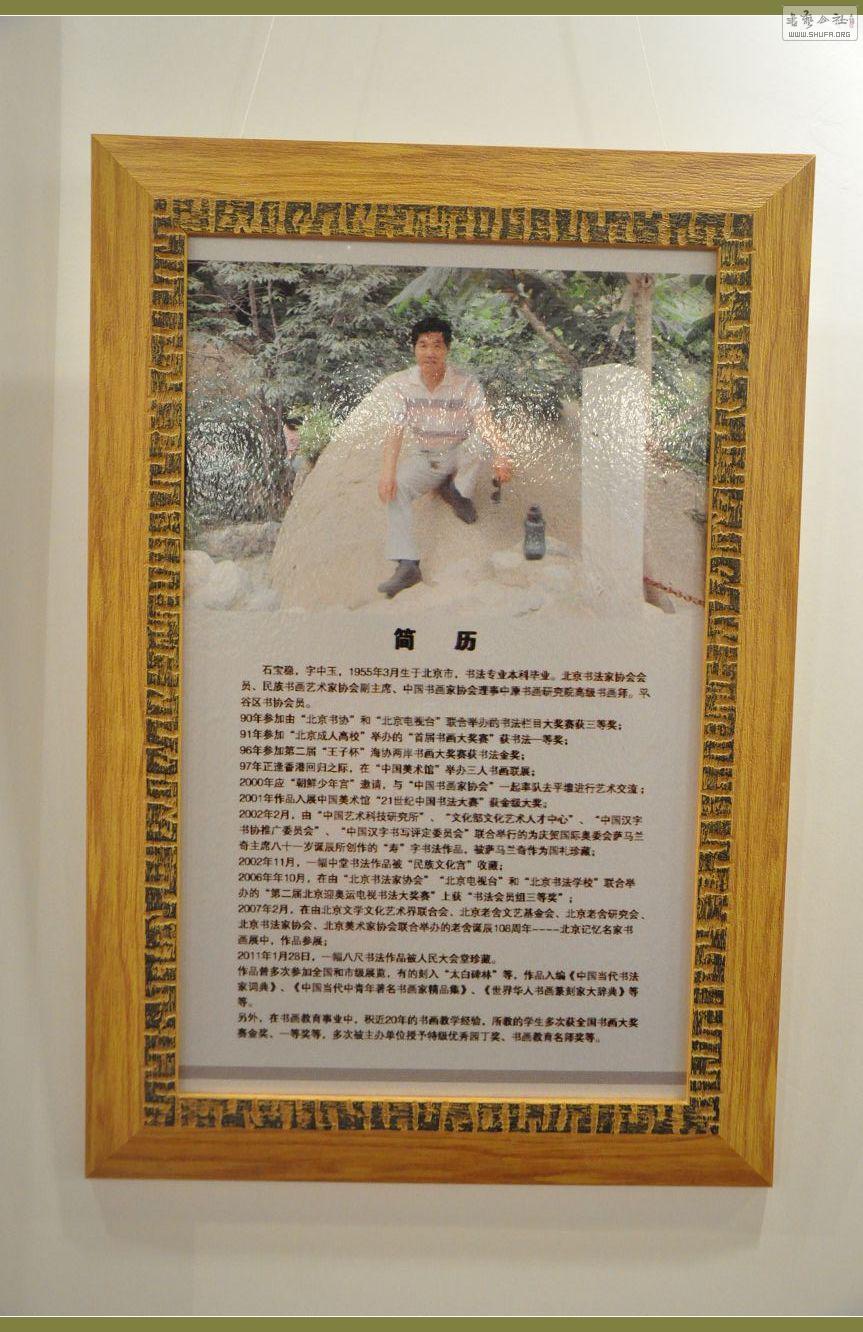 书艺公社
WWW.SHUFA.ORG
简 历
石宝稳，字中玉，1955年3月生于北京市，书法专业本科毕业。北京书法家协会会
员、民族书画艺术家协会副主席、中国书画家协会理事中康书画研究院高级书画师。平
谷区书协会员。
90年参加由“北京书协”和“北京电视台”联合举办的书法栏目大奖赛获三等奖；
91年参加“北京成人高校”举办的“首届书画大奖赛”获书法一等奖；
96年参加第二届“王子杯”海协两岸书画大奖赛获书法金奖；
97年正逢香港回归之际，在“中国美术馆”举办三人书画联展；
2000年应“朝鲜少年宫”邀请，与“中国书画家协会”一起率队去平壤进行艺术交流；
2001年作品入展中国美术馆“21世纪中国书法大赛”获金级大奖；
2002年2月，由“中国艺术科技研究所”、“文化部文化艺术人才中心”、“中国汉字
书协推广委员会”、“中国汉字书写评定委员会”联合举行的为庆贺国际奥委会萨马兰
奇主席八十一岁诞辰所创作的“寿”字书法作品，被萨马兰奇作为国礼珍藏；
2002年11月，一幅中堂书法作品被“民族文化宫”收藏；
2006年年10月，在由“北京书法家协会”“北京电视台”和“北京书法学校”联合举
办的“第二届北京迎奥运电视书法大奖赛”上获“书法会员组三等奖”；
2007年2月，在由北京文学文化艺术界联合会、北京老舍文艺基金会、北京老舍研究会、
北京书法家协会、北京美术家协会联合举办的老舍诞辰108周年----北京记忆名家书
画展中，作品参展；
2011年1月28日，一幅八尺书法作品被人民大会堂珍藏。
作品曾多次参加全国和市级展览，有的刻入“太白碑林”等，作品入编《中国当代书法
家词典》、《中国当代中青年著名书画家精品集》、《世界华人书画篆刻家大辞典》等
等。
另外，在书画教育事业中，积近20年的书画教学经验，所教的学生多次获全国书画大奖
赛金奖、一等奖等，多次被主办单位授予特级优秀园丁奖、书画教育名师奖等。